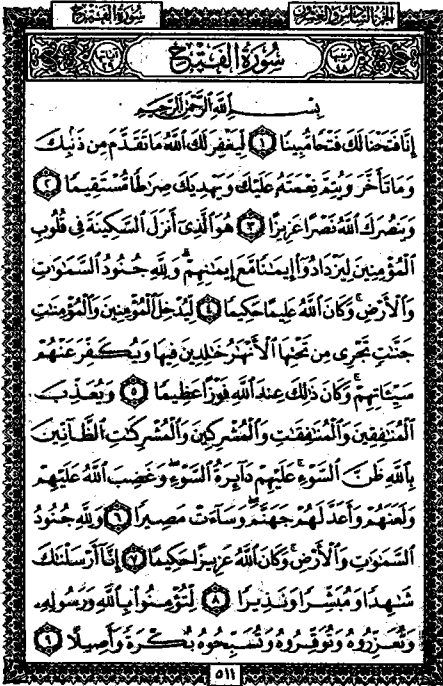 سُورَةُ الفَتْحِ
الجُزءُ السَّادِسُ وَالعِشْرُونَ
سُورَةُ الفَتْحِ
بِسْمِ اللَّهِ الرَّحْمَٰنِ الرَّحِيمِ
إِنَّا فَتَحْنَا لَكَ فَتْحًا مُّبِينًا ١ لِّيَغْفِرَ لَكَ اللَّهُ مَا تَقَدَّمَ مِن ذَنۢبِكَ
وَمَا تَأَخَّرَ وَيُتِمَّ نِعْمَتَهُۥ عَلَيْكَ وَيَهْدِيَكَ صِرَٰطًا مُّسْتَقِيمًا ٢
وَيَنصُرَكَ اللَّهُ نَصْرًا عَزِيزًا ٣ هُوَ الَّذِىٓ أَنزَلَ السَّكِينَةَ فِى قُلُوبِ
الْمُؤْمِنِينَ لِيَزْدَادُوٓا۟ إِيمَٰنًا مَّعَ إِيمَٰنِهِمْ ۗ وَلِلَّهِ جُنُودُ السَّمَٰوَٰتِ
وَالْأَرْضِ ۚ وَكَانَ اللَّهُ عَلِيمًا حَكِيمًا ٤ لِّيُدْخِلَ الْمُؤْمِنِينَ وَالْمُؤْمِنَٰتِ
جَنَّٰتٍ تَجْرِى مِن تَحْتِهَا الْأَنْهَٰرُ خَٰلِدِينَ فِيهَا وَيُكَفِّرَ عَنْهُمْ
سَيِّـَٔاتِهِمْ ۚ وَكَانَ ذَٰلِكَ عِندَ اللَّهِ فَوْزًا عَظِيمًا ٥ وَيُعَذِّبَ
الْمُنَٰفِقِينَ وَالْمُنَٰفِقَٰتِ وَالْمُشْرِكِينَ وَالْمُشْرِكَٰتِ الظَّآنِّينَ
بِاللَّهِ ظَنَّ السَّوْءِ ۚ عَلَيْهِمْ دَآئِرَةُ السَّوْءِ ۖ وَغَضِبَ اللَّهُ عَلَيْهِمْ
وَلَعَنَهُمْ وَأَعَدَّ لَهُمْ جَهَنَّمَ ۖ وَسَآءَتْ مَصِيرًا ٦ وَلِلَّهِ جُنُودُ
السَّمَٰوَٰتِ وَالْأَرْضِ ۚ وَكَانَ اللَّهُ عَزِيزًا حَكِيمًا ٧ إِنَّآ أَرْسَلْنَٰكَ
شَٰهِدًا وَمُبَشِّرًا وَنَذِيرًا ٨ لِّتُؤْمِنُوا۟ بِاللَّهِ وَرَسُولِهِۦ
وَتُعَزِّرُوهُ وَتُوَقِّرُوهُ وَتُسَبِّحُوهُ بُكْرَةً وَأَصِيلًا ٩
٥١١